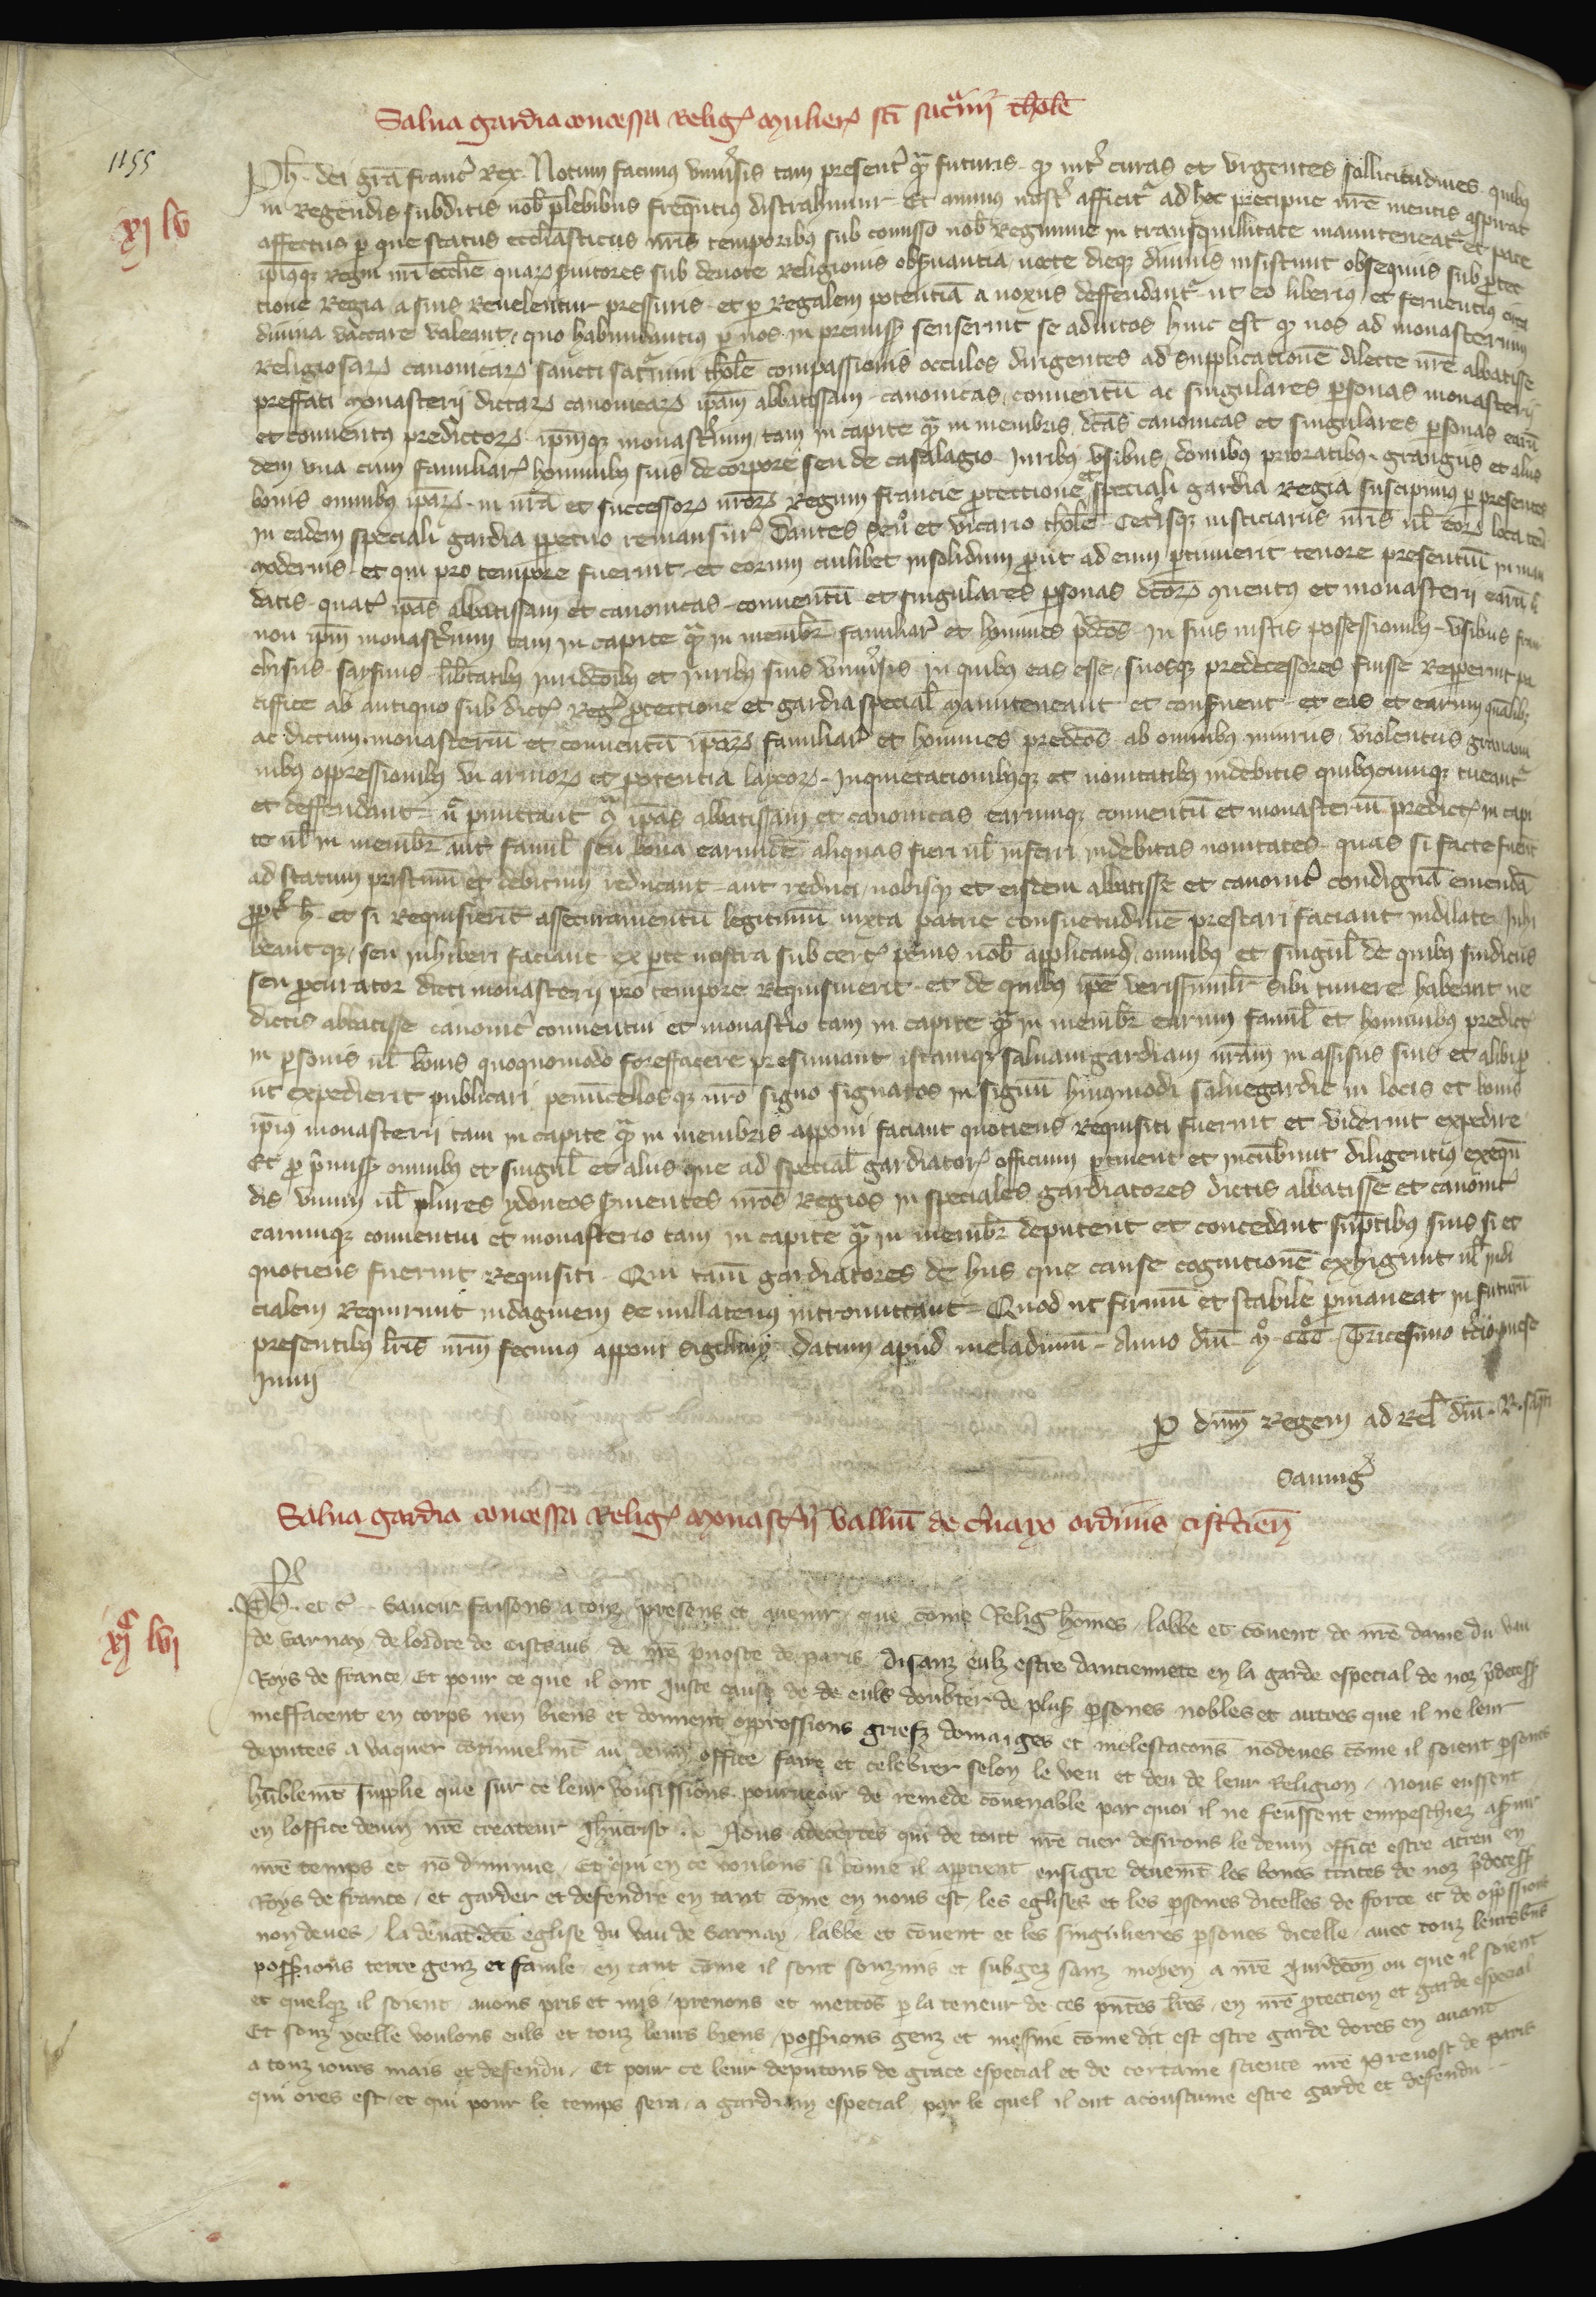 Salua gardia concessa Relig. mulier. sci saturnini tholose
1155
xj lv
Ph. dei gra franc Rex. Notum facimus vniuersis tam presentibz qua futuris. qd inter curas et vrgentes sollicitudines quibus
in Regendis subditis nob plebibus frequentius distrahimur. Et animus nostr afficitr ad hec precipue nre mentis aspirat
affectus per que status ecclesiasticus nris temporibus sub comisso nob Regimine in transquillitate manuteneatr et pace
ipiaqz Regni nri ecclie quar seruitores sub deuote Religionis obseruantia nocte dieqz diuinis insistunt obsequiis sub protec
tione Regia a suis Reuelentur pressuris. et per Regalem potentia a noxiis deffendantr ut eo liberius et feruentius circa
diuina vaccare valeant, quo habundantius per nos in premissis senserint se adiutos hinc est qd nos ad monasterium
Religiosar canonicar sancti saturnini tholose compassionis occulos dirigentes ad supplicatione dilecte nre abbatisse
preffati monasterij dictar canonicar ipam abbatissam. canonicas, conuentu ac singulares personas monasterij
et conuentus predictor. ipmqz monasterium, tam in capite qua in membris, dcas canonicas et singulares personas earu
dem vna cum familiar hominibus suis de corpore seu de casalagio. Iuribus vsibus, domibus prioratibus, grangiis et aliis
bonis omnibus ipar. in nra et successor nror Regum francie protectione et speciali gardia Regia suscipimus per presentes
in eadem speciali gardia perpetuo remansur. Dantes sen et vicario tholose. Cetisqz iusticiariis nris ul eor loca ten
modernis. et qui pro tempore fuerint. et eorum cuilibet insolidum prout ad eum pertinuerit tenore presentiu in man
datis. quatr ipas abbatissam et canonicas. conuentu et singulares personas dcor conuentus et monasterij earu
non ipm monasterium tam in capite qua in membr familiar et homines pdcos. In suis iustis possessionibus. vsibus fran
chisiis. saysinis. libertatibus iuridcoibus et iuribus suis vniuersis in quibus eas esse, suosqz predecessores fuisse Repperint pa
ciffice ab antiquo sub dict Reg protectione et gardia special manuteneant et conseruent. et eas et earum qualibz
ac dictum monasteriu et conuentu ipar familiar et homines predcos ab omnibus iniuriis, violentiis grauami
nibus oppressionibus vi armor et potentia laycor. Inquietacionibusqz et nouitatibus indebitis quibuscumqz tueantr
et deffendant. nec permittant contra ipas abbatissam et canonicas earumqz conuentu et monasteriu predict in capi
te ul in membr aut famil seu bona earumde aliquas fieri ul inferri indebitas nouitates. quas si facte fuerit
ad statum pristinu et debitum reducant. aut reduci, nobisqz et eisdem abbatisse et canonic condigna emenda
proptr h. et si Requisierit assecuramentu legitimu iuxta patrie consuetudine prestari faciant indilate. Inhi
beantqz, seu inhiberi faciant ex parte nostra sub cert penis nob applicand omnibus et singul de quibus sindicus
seu procurator dicti monasterij pro tempore Requisiuerit. et de quibus ipe verissimilr sibi timere habeant ne
dictis abbatisse canonic conuentui et monasterio tam in capite qua in membr earum famil et hominibus predict
in personis ul bonis quoquomodo foreffacere presumant. istamqz saluamgardiam nram in assisiis suis et alibi pro
ut expedierit publicari, penucellosqz nro signo signatos in signu huiusmodi saluegardie in locis et bonis
ipius monasterij tam in capite qua in membris. apponi faciant quotiens requisiti fuerint et viderint expedire
Et pro premiss omnibus et singul et aliis que ad special gardiator officium pertinent et incumbunt diligentius exequen
dis vnum ul plures ydoneos seruientes nros Regios in speciales gardiatores dictis abbatisse et canonic
earumqz conuentui et monasterio tam in capite qua in membr deputent et concedant sumptibus suis si et
quotiens fuerint Requisiti. Qui tam gardiatores de hiis que cause cognitione exhigunt ul iudi
cialem Requirunt indaginem se nullatenus intromittant. Quod ut firmu et stabile permaneat in futuru
presentibus lris nrm fecimus apponi sigillum. datum apud meladunu. Anno dni mo. CCCo. Tricesimo tercio mense
Iunij
Per dnm Regem ad Rel dni. R.
Sauuig
Salua gardia concessa Relig. monasterij valliu de Sernayo ordinis cistercien
xj lvj
Ph. et c. Sauoir faisons a touz presens et auenir, que come Relig homes, labbe et couent de nre dame du vau
de Sarnay, de lordre de cisteaus, de nre preuoste de Paris. disanz eulz estre danciennete en la garde especial de noz predecess
Roys de france, Et pour ce que il ont Juste cause de de euls doubter de plus persones nobles et autres que il ne leur
meffacent en corps nen biens et donnent oppressions griefz domaiges et molestacons nodeues come il soient persones
deputees a vaquer continuelmt au deuin office faire et celebrer selon le veu et deu de leur Religion, nous eussent
humblemt supplie que sur ce leur vousissions pourueoir de remede couenable par quoi il ne feussent empeschiez a seruir
en loffice deuin nre createur Jhucrist. Nous adecertes qui de tout nre cuer desirons le deuin office estre acreu en
nre temps et no diminue, Et qui en ce voulons si come il appartient ensigre deuemt les bones traces de noz predecess
Roys de france, et garder et defendre en tant come en nous est, les eglises et les persones dicelles de force et de oppressions
non deues, la deuat dce eglise du vau de Sarnay, labbe et couent et les singulieres persones dicelle, auec touz leurs biens
possessions terre genz et famile en tant come il sont souzmis et subgez sanz moyen a nre Juridcon ou que il soient
et quelqz il soient, auons pris et mis, prenons et mettos par la teneur de ces pntes lres, en nre protection et garde especial
Et souz ycelle voulons euls et touz leurs biens, possessions genz et mesnie come dit est estre garde dores en auant
a touz iours mais et defendu, Et pour ce leur deputons de grace especial et de certaine science nre Preuost de Paris
qui ores est, et qui pour le temps sera, a gardian especial, par le quel il ont acoustume estre garde et defendu